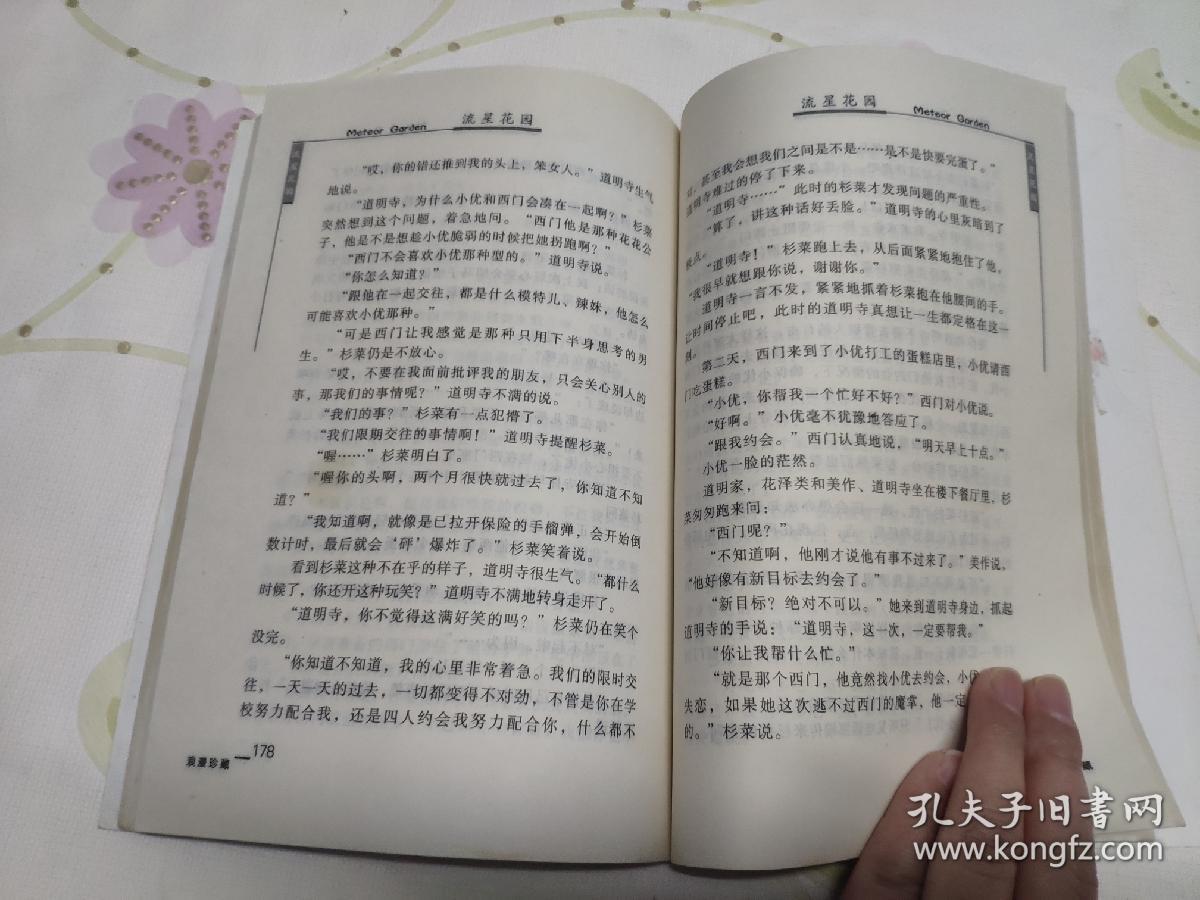 Meteor Garden 流星花园
“哎，你的错还推到我的头上，笨女人。”道明寺生气
地说。
“道明寺，为什么小优和西门会凑在一起啊？”杉菜
突然想到这个问题，着急地问。“西门他是那种花花公
子，他是不是想趁小优脆弱的时候把她拐跑啊？”
“西门不会喜欢小优那种型的。”道明寺说。
“你怎么知道？”
“跟他在一起交往，都是什么模特儿、辣妹，他怎么
可能喜欢小优那种。”
“可是西门让我感觉是那种只用下半身思考的男
生。”杉菜仍是不放心。
“哎，不要在我面前批评我的朋友，只会关心别人的
事，那我们的事情呢？”道明寺不满的说。
“我们的事？”杉菜有一点犯懵了。
“我们限期交往的事情啊！”道明寺提醒杉菜。
“喔……”杉菜明白了。
“喔你的头啊，两个月很快就过去了，你知道不知
道？”
“我知道啊，就像是已拉开保险的手榴弹，会开始倒
数计时，最后就会‘砰’爆炸了。”杉菜笑着说。
看到杉菜这种不在乎的样子，道明寺很生气。“都什么
时候了，你还开这种玩笑？”道明寺不满地转身走开了。
“道明寺，你不觉得这满好笑的吗？”杉菜仍在笑个
没完。
“你知道不知道，我的心里非常着急。我们的限时交
往，一天一天的过去，一切都变得不对劲，不管是你在学
校努力配合我，还是四人约会我努力配合你，什么都不
浪漫珍藏 178
流星花园 Meteor Garden
，甚至我会想我们之间是不是……是不是快要完蛋了。”
道明寺难过的停了下来。
“道明寺……”此时的杉菜才发现问题的严重性。
“算了，讲这种话好丢脸。”道明寺的心里灰暗到了
点。
“道明寺！”杉菜跑上去，从后面紧紧地抱住了他，
“我很早就想跟你说，谢谢你。”
道明寺一言不发，紧紧地抓着杉菜抱在他腰间的手。
让时间停止吧，此时的道明寺真想让一生都定格在这一
刻。
第二天，西门来到了小优打工的蛋糕店里，小优请西
门吃蛋糕。
“小优，你帮我一个忙好不好？”西门对小优说。
“好啊。”小优毫不犹豫地答应了。
“跟我约会。”西门认真地说，“明天早上十点。”
小优一脸的茫然。
道明家，花泽类和美作、道明寺坐在楼下餐厅里，杉
菜匆匆跑来问：
“西门呢？”
“不知道啊，他刚才说他有事不过来了。”美作说，
“他好像有新目标去约会了。”
“新目标？绝对不可以。”她来到道明寺身边，抓起
道明寺的手说：“道明寺，这一次，一定要帮我。”
“你让我帮什么忙。”
“就是那个西门，他竟然找小优去约会，小优
失恋，如果她这次逃不过西门的魔掌，他一定
的。”杉菜说。
藏
孔夫子旧书网
www.kongfz.com